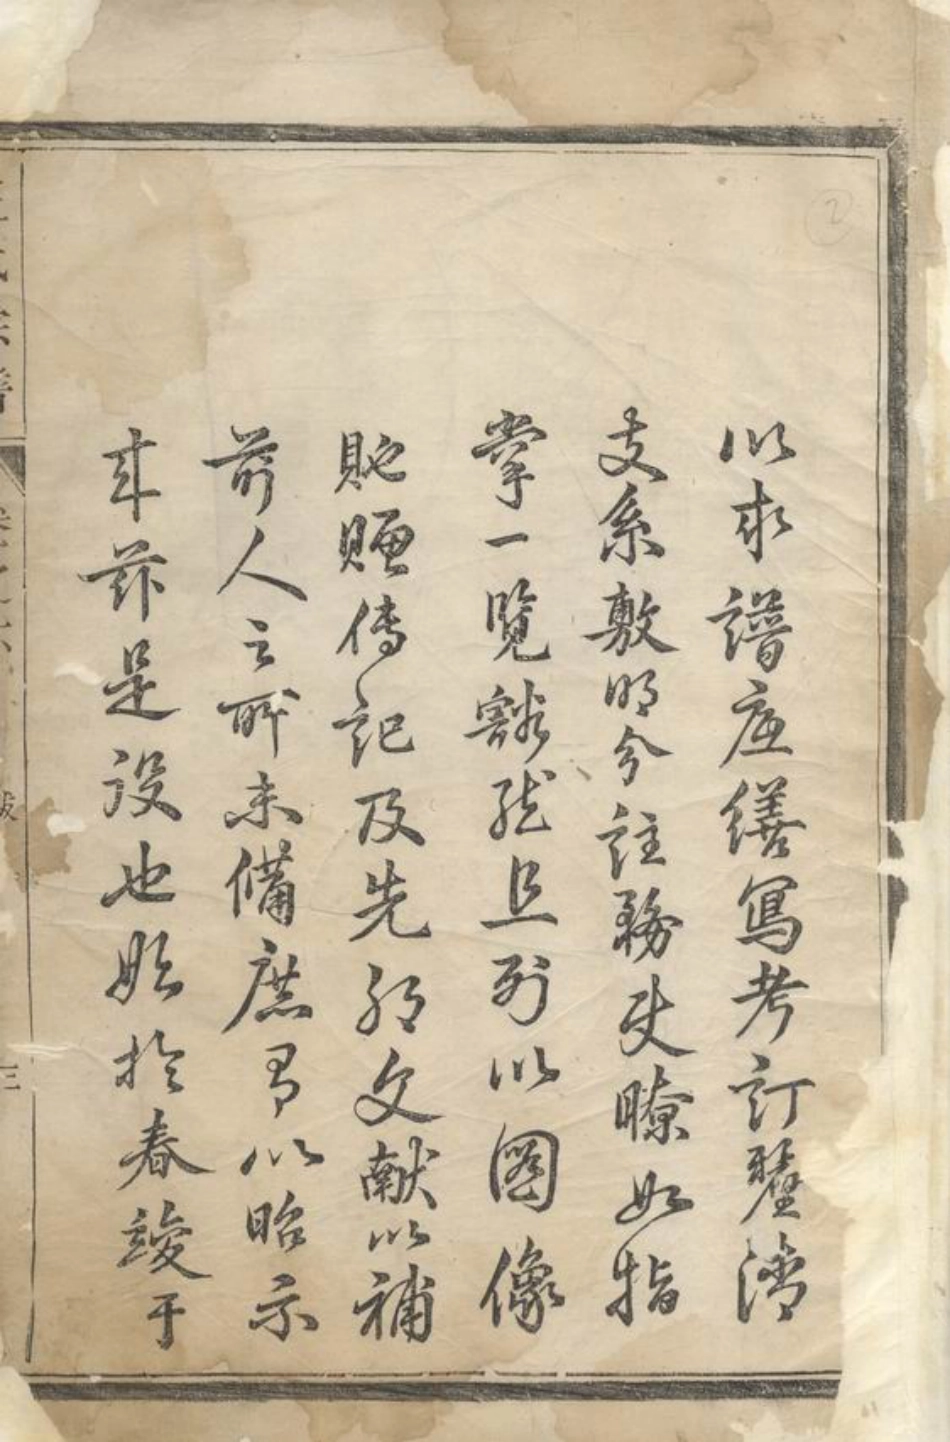 以求譜繕寫考訂釐清
支系敷明分註務使瞭如指
掌一覽豁然且列以圖像
貤贈傳記及先文獻以補
前人之所未備庶有以昭示
來茲是設也始於春竣于
氏宗譜 卷之 跋 三
2